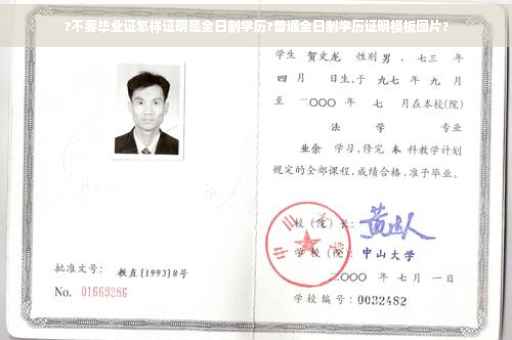 ?不要毕业证怎样证明是全日制学历?普通全日制学历证明模板图片?
学生 贺文龙 性别 男 , 七三 年
四 月 日生,于 九七 年 九 月
至 二〇〇〇 年 七 月在本校(院)
法 学 专业
业余 学习,修完 本 科教学计划
规定的全部课程,成绩合格,准予毕业。
校(院)长:
学校(院): 中山大学
二〇〇〇 年 七 月 一 日
学校编号: 0032482
批准文号: 教直[1993]8号
No. 01669286